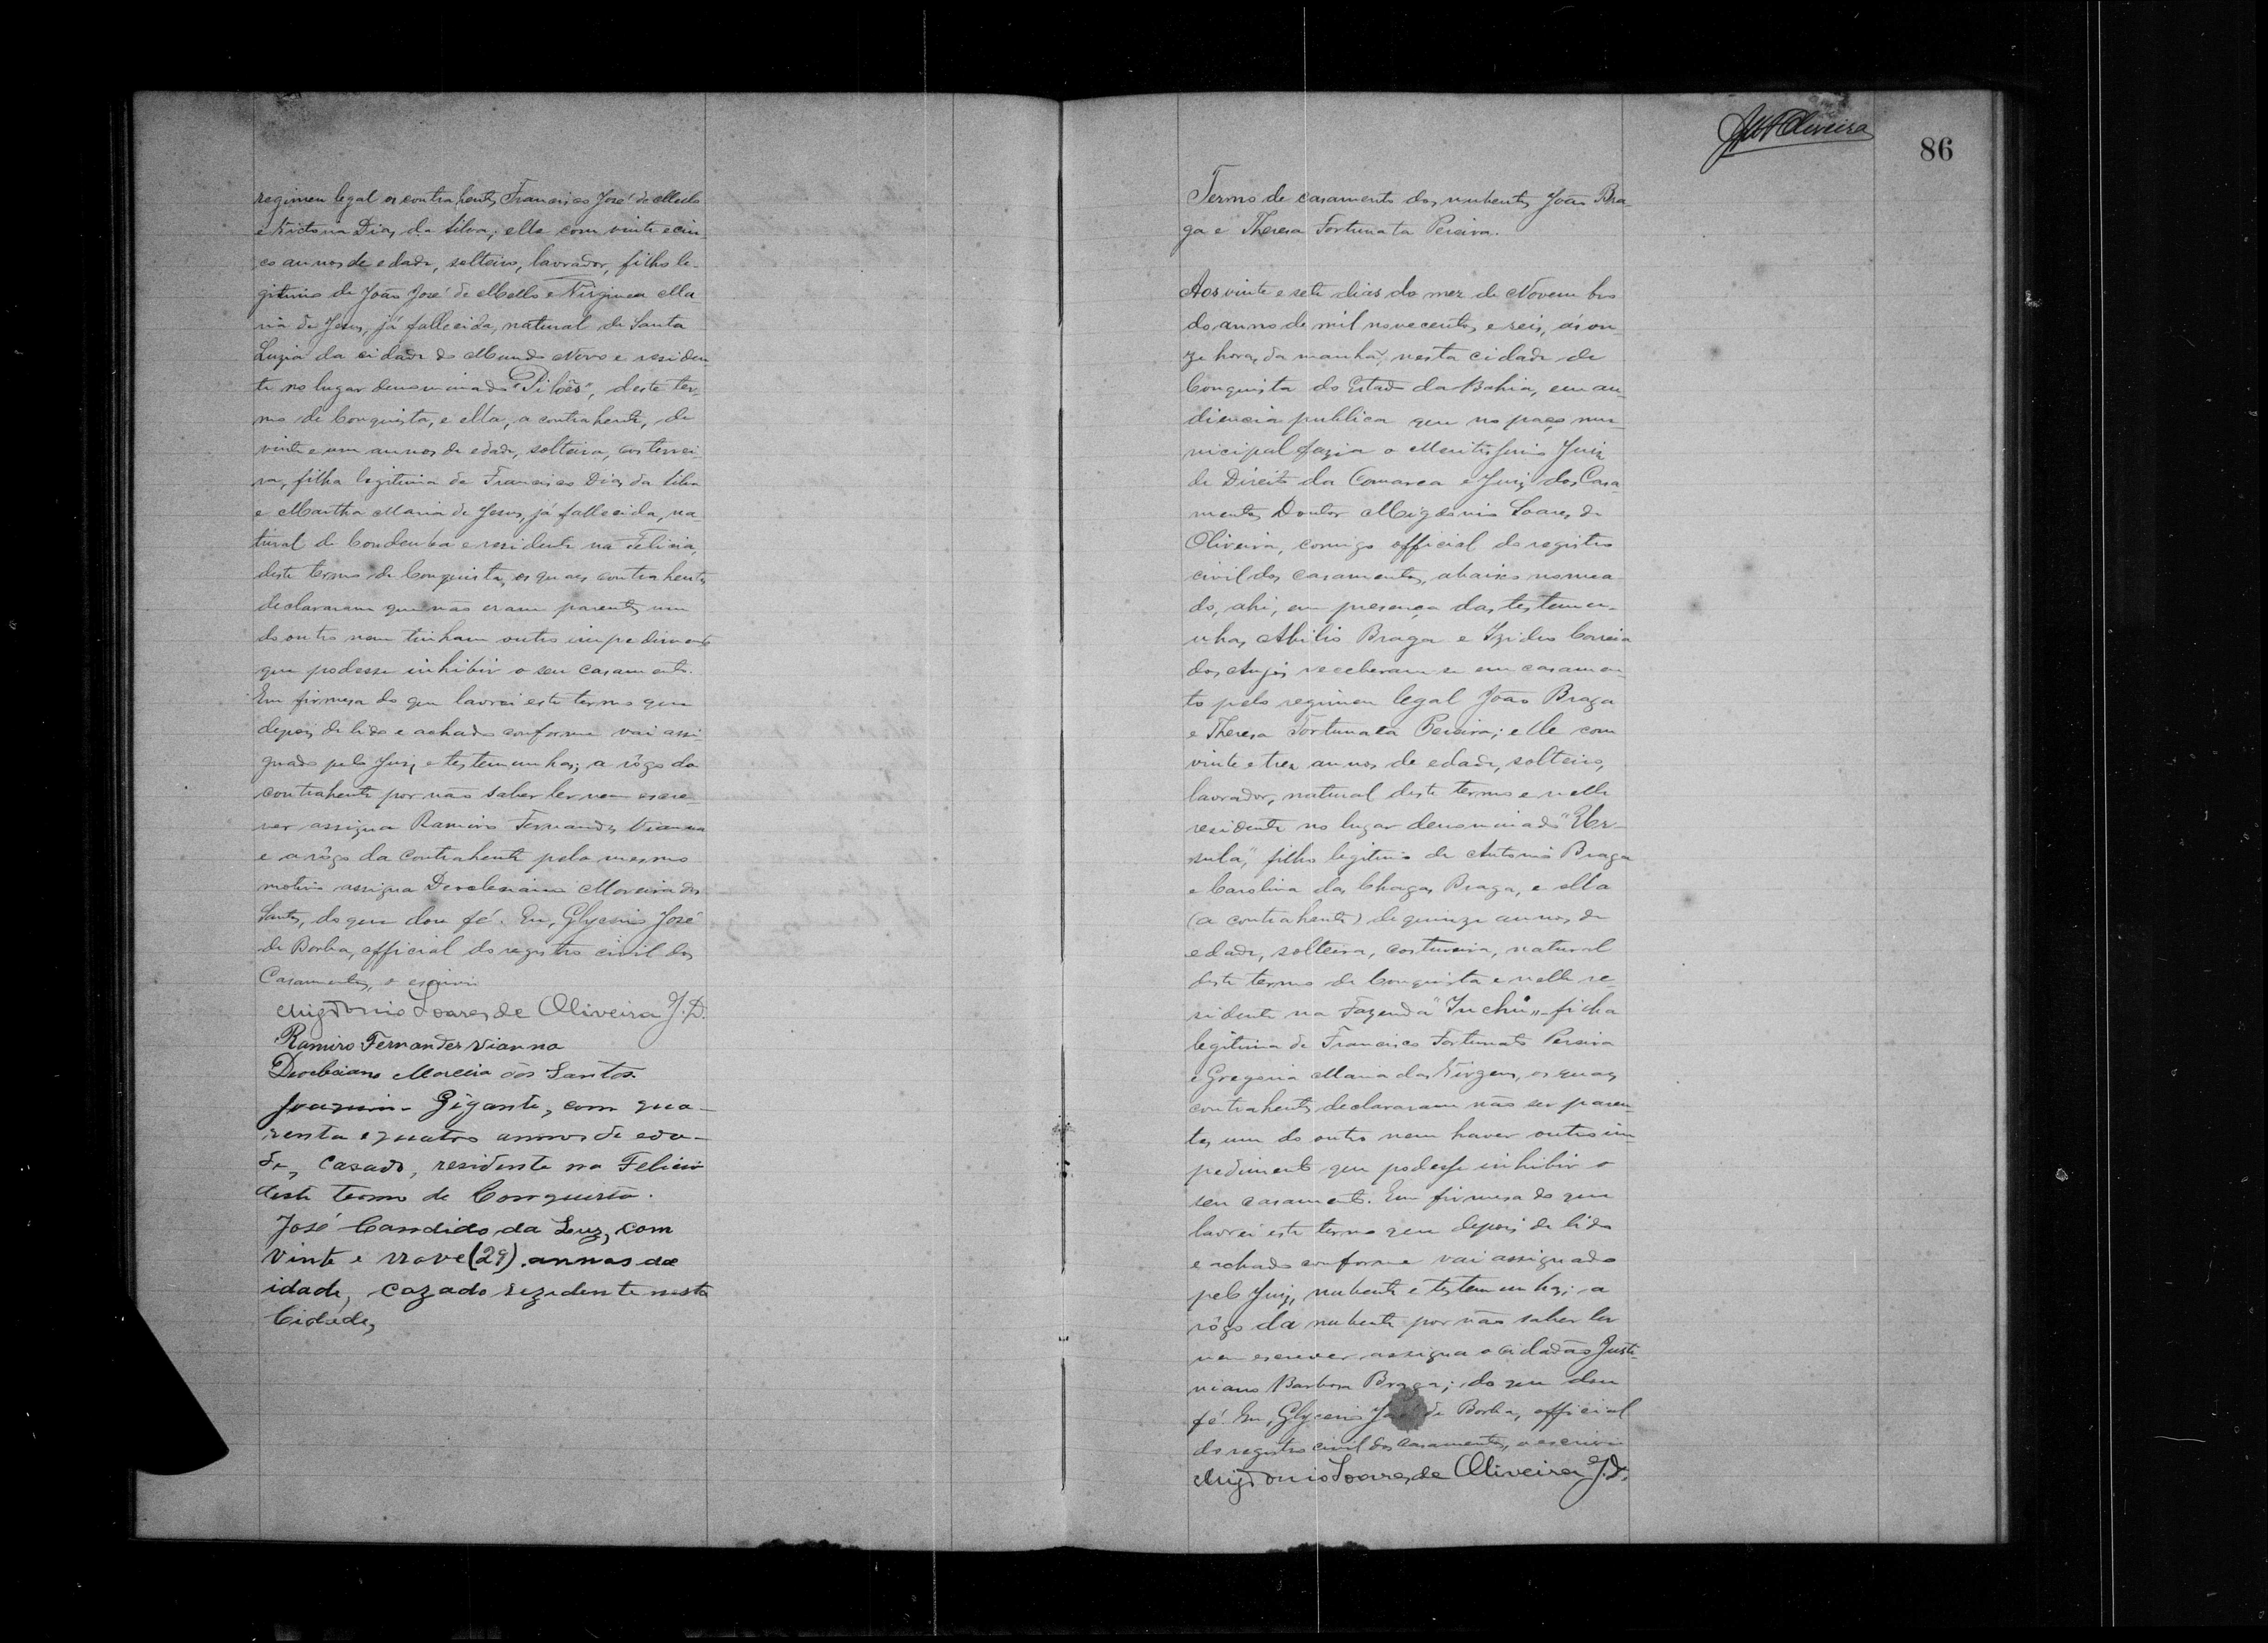 regimen legal os contrahentes Francisco José de Mello
e Victoria Dias da Silva; elle com vinte e cin-
co annos de edade, solteiro, lavrador, filho le-
gitimo de João José de Mello e Virginea Ma-
ria de Jesus, já fallecida, natural de Santa
Luzia da cidade do Mundo Novo e residen-
te no lugar denominado "Pilões", deste ter-
mo de Conquista, e ella, a contrahente, de
vinte e um annos de edade, solteira, costurei-
ra, filha legitima de Francisco Dias da Silva
e Martha Maria de Jesus, já fallecida, na-
tural de Condeuba e residente na Felicia,
deste termo de Conquista, os quaes contrahentes
declararam que não eram parentes um
do outro nem tinham outro impedimento
que podesse inhibir o seu casamento.
Em firmesa do que lavrei este termo que
depois de lido e achado conforme vai assi-
gnado pelo Juiz e testemunhas; a rôgo do
contrahente por não saber ler nem escre-
ver assigna Ramiro Fernandes Vianna
e a rôgo da contrahente pelo mesmo
motivo assigna Deocleciano Moreira dos
Santos, do que dou fé. Eu, Glycerio José
de Borba, official do registro civil dos
Casamentos, o escrivi
Migdonio Soares de Oliveira J.D.
Ramiro Fernandes Vianna
Deocleciano Moreira dos Santos.
Joaquim Gigante, com qua-
renta e quatro annos de eda-
de, casado, residente na Felicia
deste termo de Conquista.
José Candido da Luz, com
vinte e nove (29) annos de
idade, cazado rezidente nesta
Cidade,
86
Termo de casamento dos nubentes João Bra-
ga e Theresa Fortunata Pereira.
Aos vinte e sete dias do mez de Novembro
do anno de mil novecentos e seis, ás on-
ze horas da manhã, nesta cidade de
Conquista do Estado da Bahia, em au-
diencia publica que no paço mu-
nicipal fazia o Meritissimo Juiz
de Direito da Comarca e Juiz dos Casa-
mentos Doutor Migdonio Soares de
Oliveira, comigo official do registro
civil dos casamentos, abaixo nomea-
do, ahi, em presença das testemu-
nhas Abilio Braga e Izidro Correia
dos Anjos receberam-se em casamen-
to pelo regimen legal João Braga
e Theresa Fortunata Pereira; elle com
vinte e trez annos de edade, solteiro,
lavrador, natural deste termo e nelle
residente no lugar denominado "Ur-
sula", filho legitimo de Antonio Braga
e Carolina das Chagas Braga, e ella
(a contrahente) de quinze annos de
edade, solteira, costureira, natural
deste termo de Conquista e nelle re-
sidente na Fazenda "Inchú", filha
legitima de Francisco Fortunato Pereira
e Gregoria Maria das Virgens, os quaes
contrahentes declararam não ser paren-
tes um do outro nem haver outro im-
pedimento que podesse inhibir o
seu casamento. Em firmesa do que
lavrei este termo que depois de lido
e achado conforme vai assignado
pelo Juiz, nubente e testemunhas; a
rôgo da nubente por não saber ler
nem escrever assigna o cidadão Justi-
niano Barbosa Braga; do que dou
fé. Eu, Glycerio José de Borba, official
do registro civil dos casamentos, o escrivi
Migdonio Soares de Oliveira J.D.